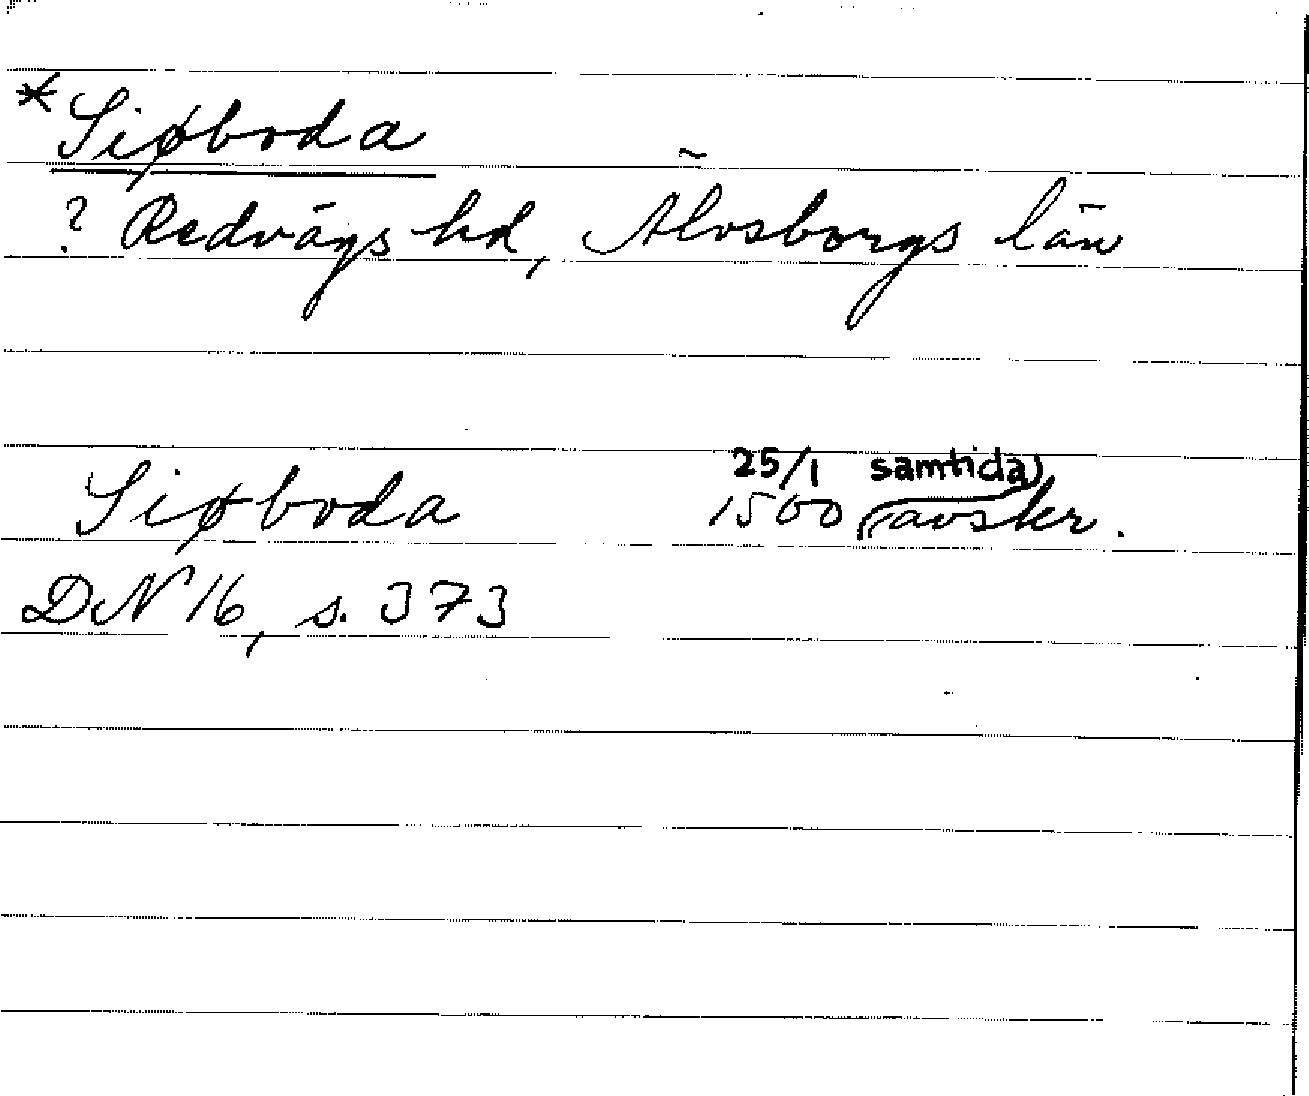 *Siøboda
? Redvägs hd, Älvsborgs län
Siøboda 25/1 1500 (samtida avskr.
DN 16, s. 373